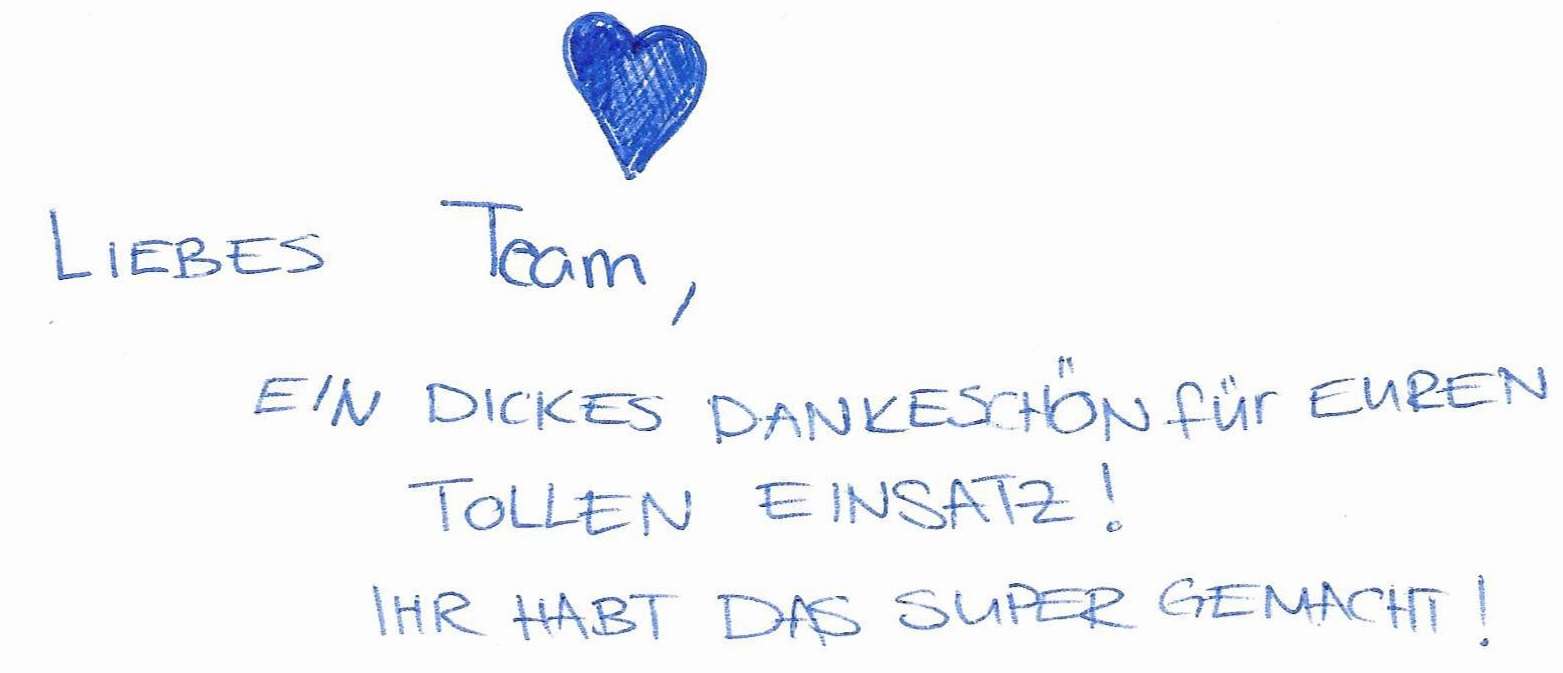 LIEBES Team,
EIN DICKES DANKESCHÖN für EUREN
TOLLEN EINSATZ!
IHR HABT DAS SUPER GEMACHT!